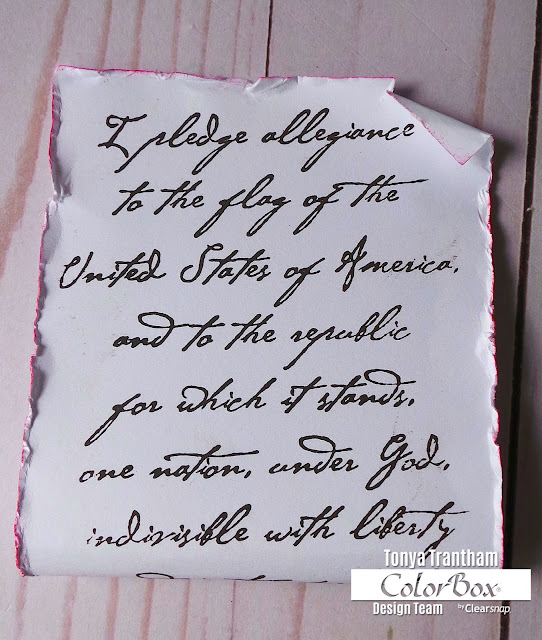 I pledge allegiance
to the flag of the
United States of America,
and to the republic
for which it stands,
one nation, under God,
indivisible with liberty
Tonya Trantham
ColorBox®
Design Team by Clearsnap